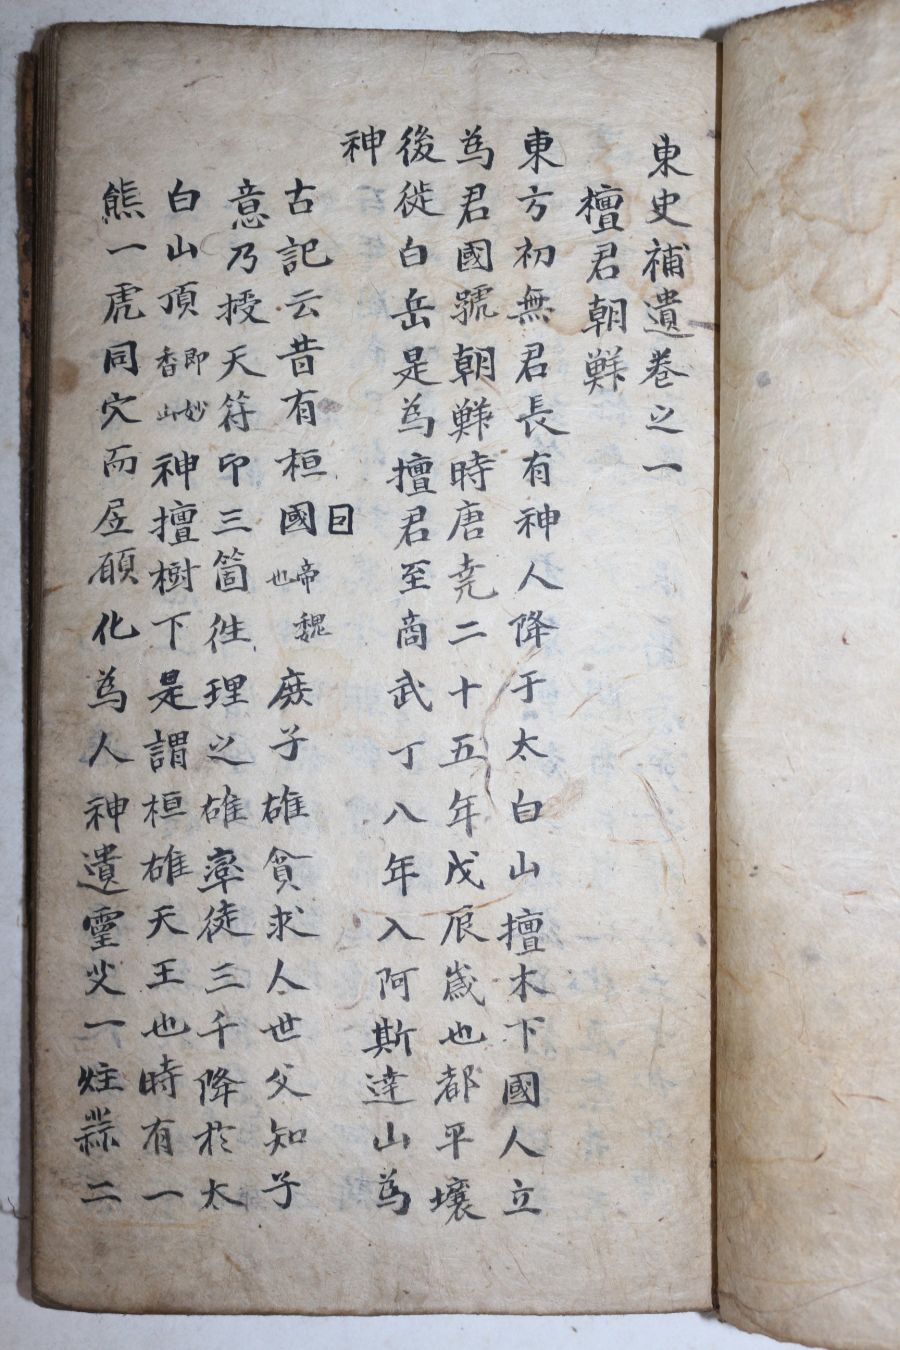 東史補遺卷之一
檀君朝鮮
東方初無君長有神人降于太白山檀木下國人立
為君國號朝鮮時唐尭二十五年戊辰歲也都平壤
後徙白岳是為檀君至商武丁八年入阿斯達山為
神
古記云昔有桓國帝魏也庶子雄貪求人世父知子
囙
意乃授天符印三箇徃理之雄率徒三千降於太
白山頂即妙香山神檀樹下是謂桓雄天王也時有一
熊一虎同穴而居願化為人神遺靈艾一炷蒜二